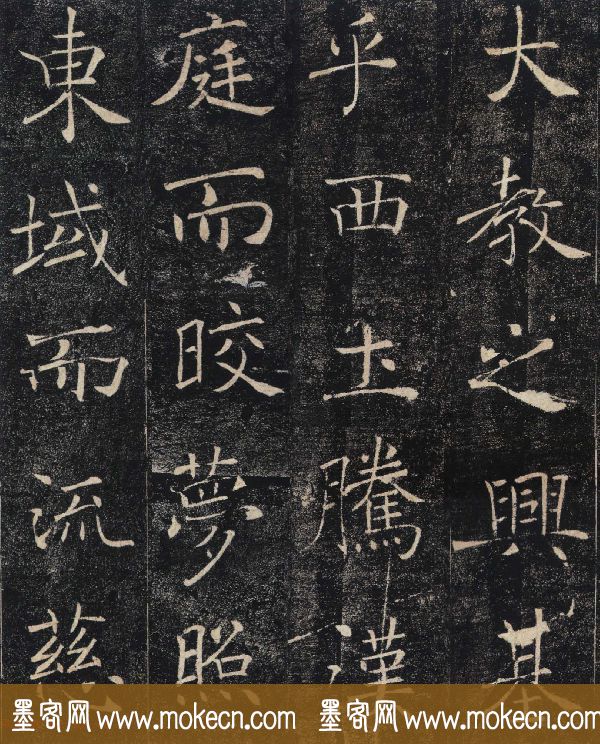 大教之興基
乎西土騰漢
庭而晈夢照
東域而流慈
墨客网 www.mokecn.com 墨客网 www.mokecn.com